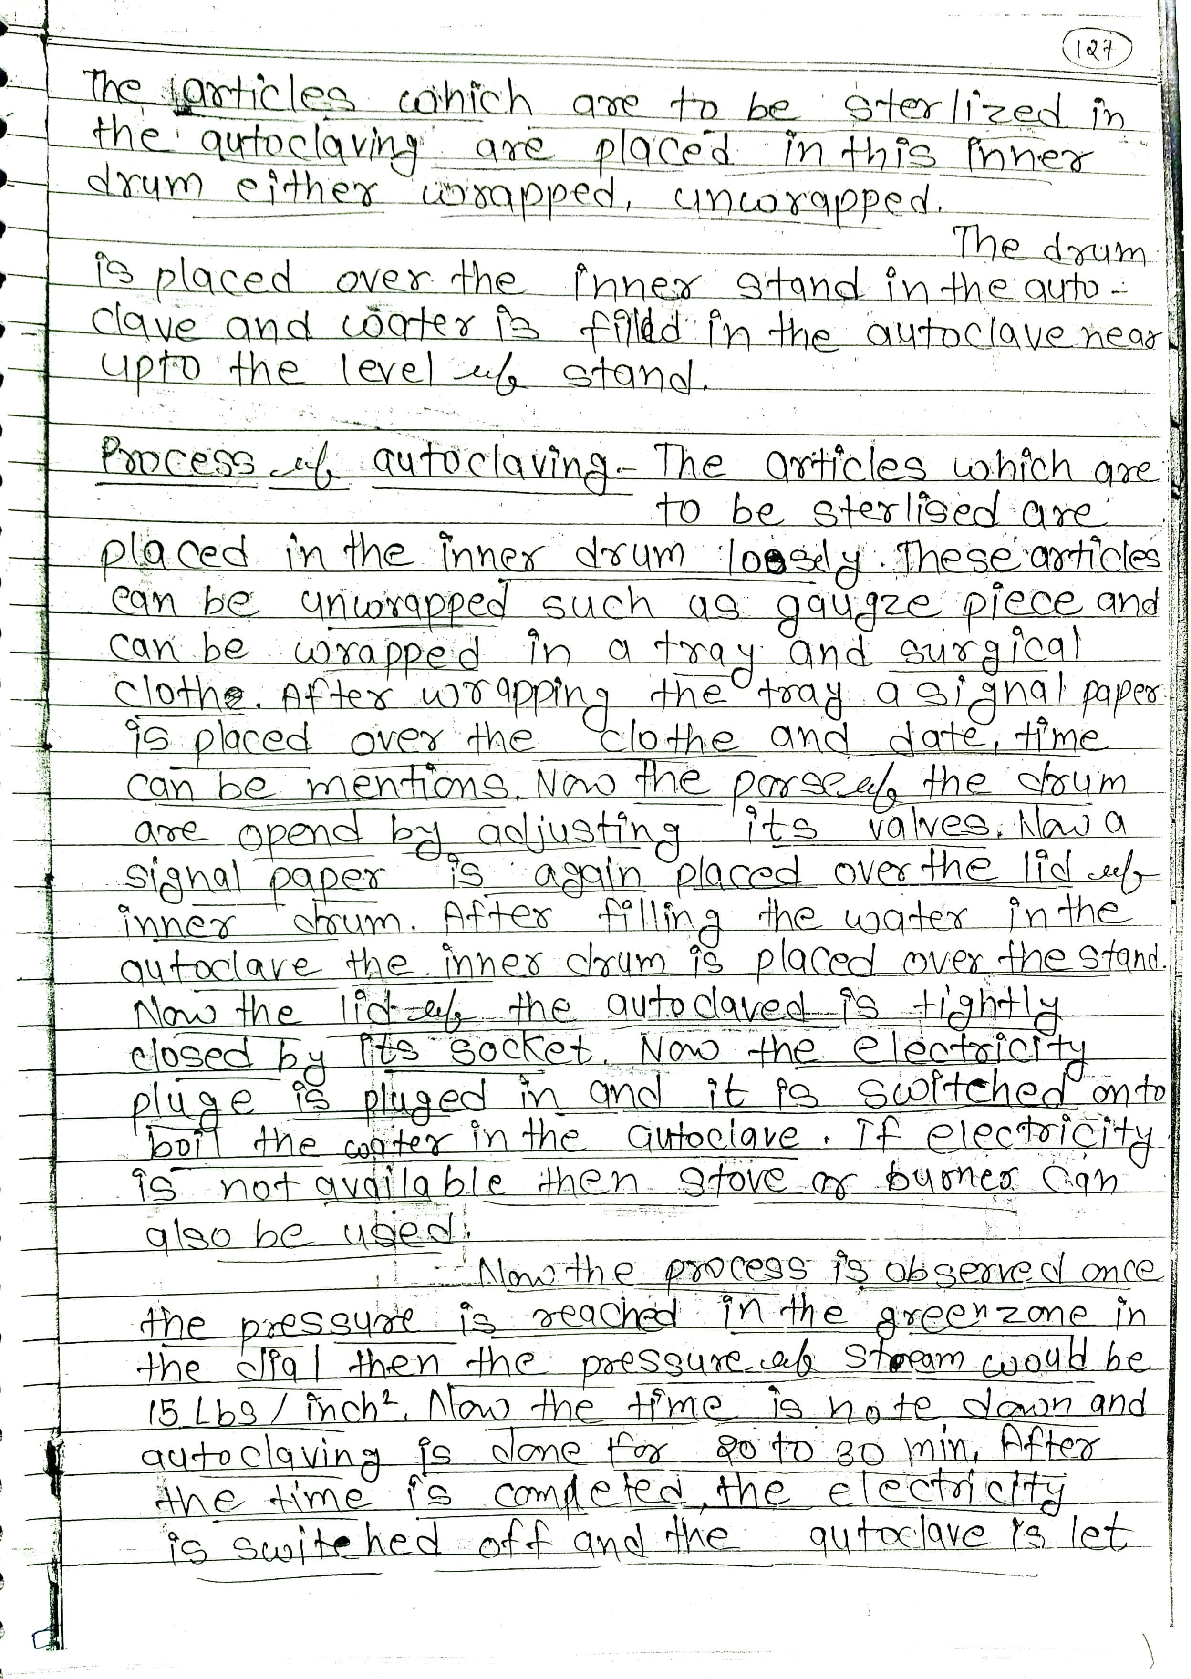 127
The articles which are to be sterlized in
the autoclaving are placed in this inner
drum either wrapped, unwrapped.
The drum
is placed over the inner stand in the auto-
clave and water is filld in the autoclave near
upto the level of stand.
Process of autoclaving- The articles which are
to be sterlised are
placed in the inner drum loosely. These articles
can be unwrapped such as gaugze piece and
can be wrapped in a tray and surgical
clothe. After wrapping the tray a signal paper
is placed over the clothe and date, time
can be mentions. Now the porse of the drum
are opend by adjusting its valves. Now a
signal paper is again placed over the lid of
inner drum. After filling the water in the
autoclave the inner drum is placed over the stand.
Now the lid of the autoclaved is tightly
closed by its socket. Now the electricity
pluge is pluged in and it is switched on to
boil the water in the autoclave. If electricity
is not available then stove or burner can
also be used.
Now the process is observed once
the pressure is reached in the green zone in
the dial then the pressure of Stream would be
15 Lbs / inch². Now the time is note down and
autoclaving is done for 20 to 30 min. After
the time is completed, the electricity
is switched off and the autoclave is let